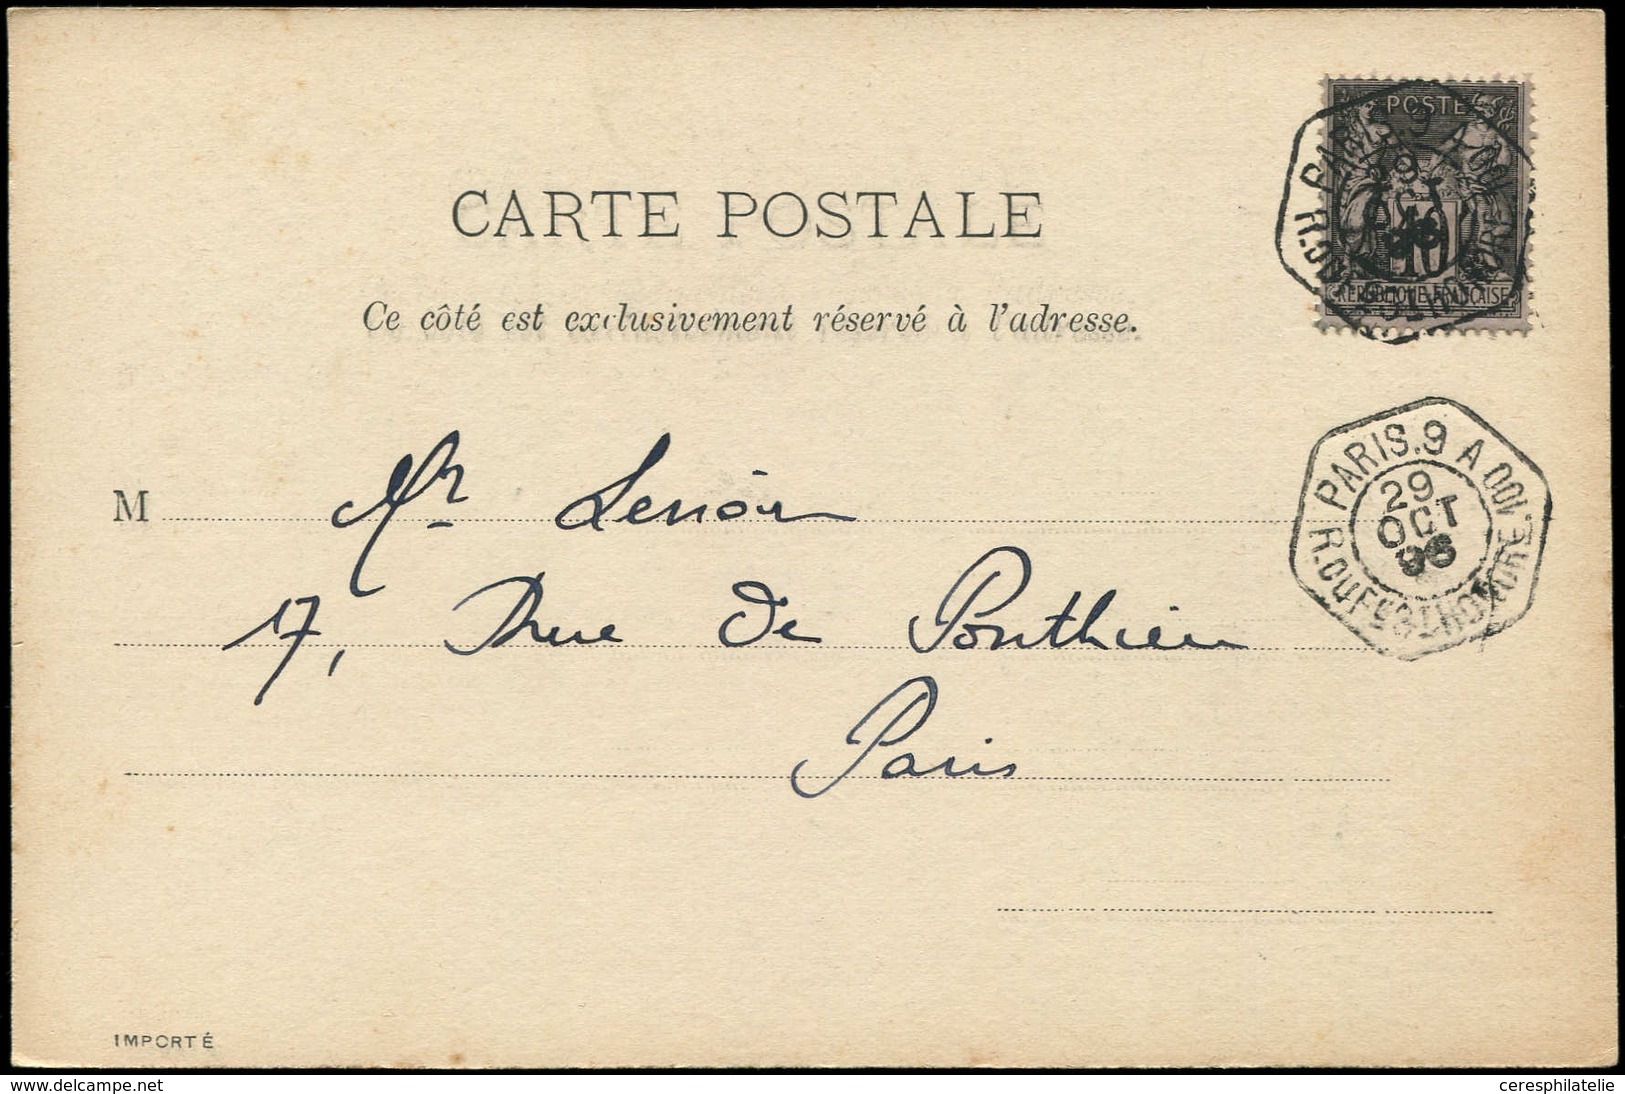 POSTE
10
REPUBLIQUE FRANÇAISE
CARTE POSTALE
Ce côté est exclusivement réservé à l'adresse.
PARIS.9
29
OCT
96
M Mr Lenoir
17, Rue de Ponthieu
Paris
IMPORTÉ
www.delcampe.net
ceresphilatelie